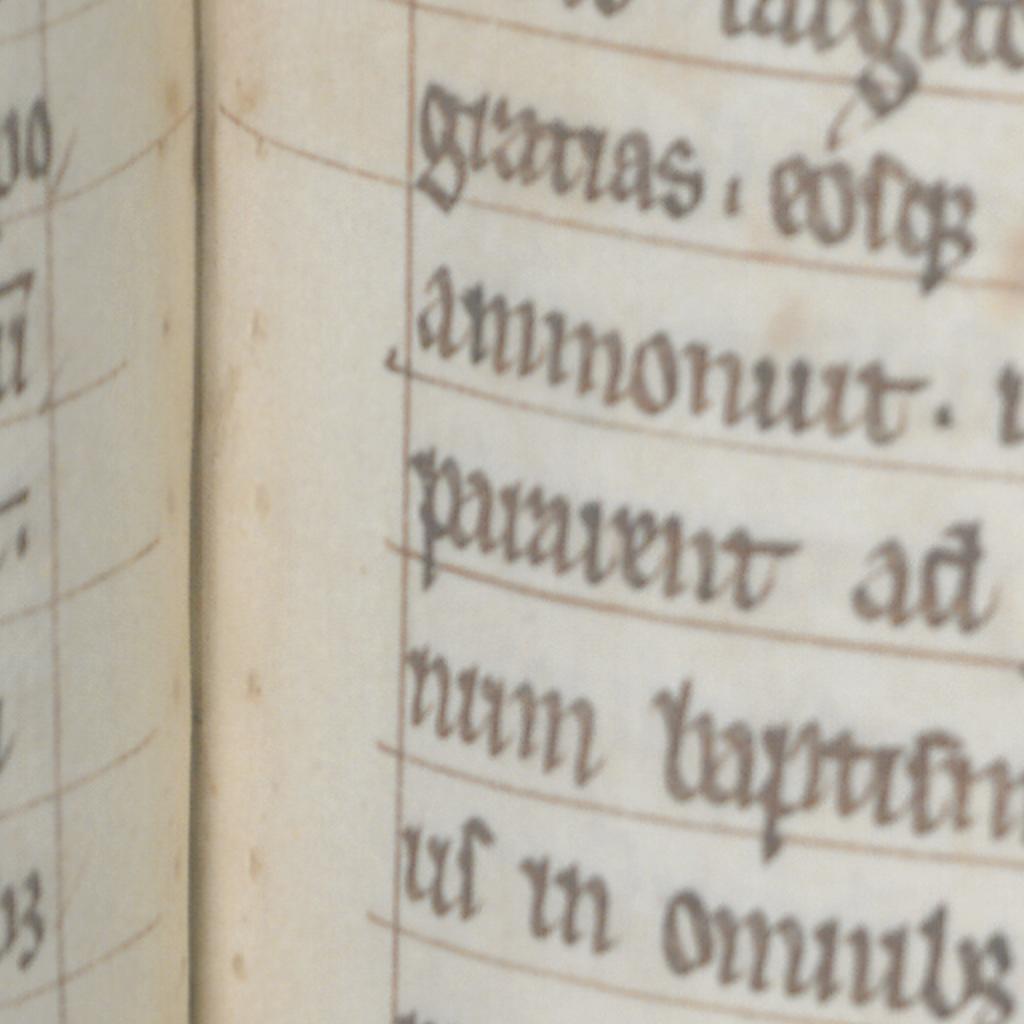 largito
gratias. eosq;
ammonuit.
pararent ad
num baptism
us in omnib;